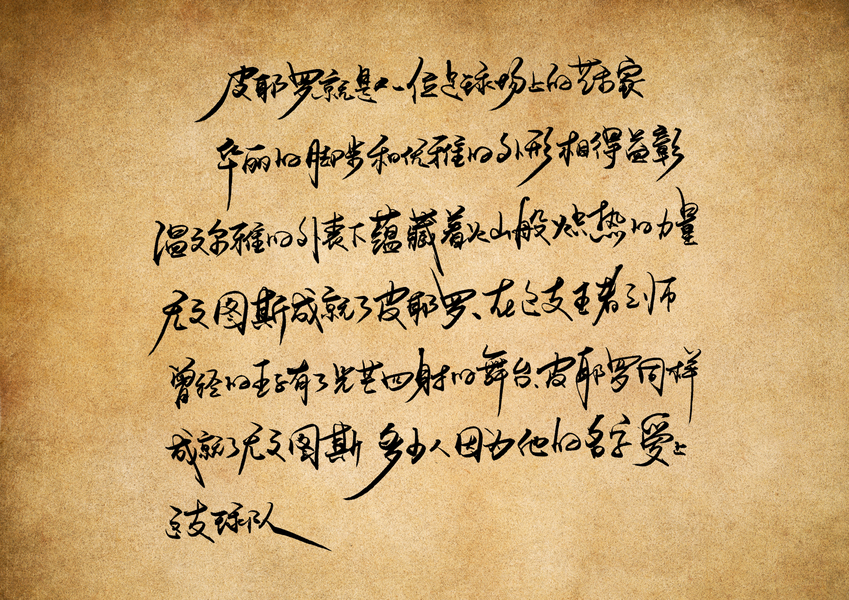 皮耶罗就是一位足球场上的艺术家
华丽的脚步和优雅的外形相得益彰
温文尔雅的外表下蕴藏着火山般炽热的力量
尤文图斯成就了皮耶罗、在这支王者之师
曾经的王子有了光芒四射的舞台、皮耶罗同样
成就了尤文图斯 多少人因为他的名字爱上
这支球队